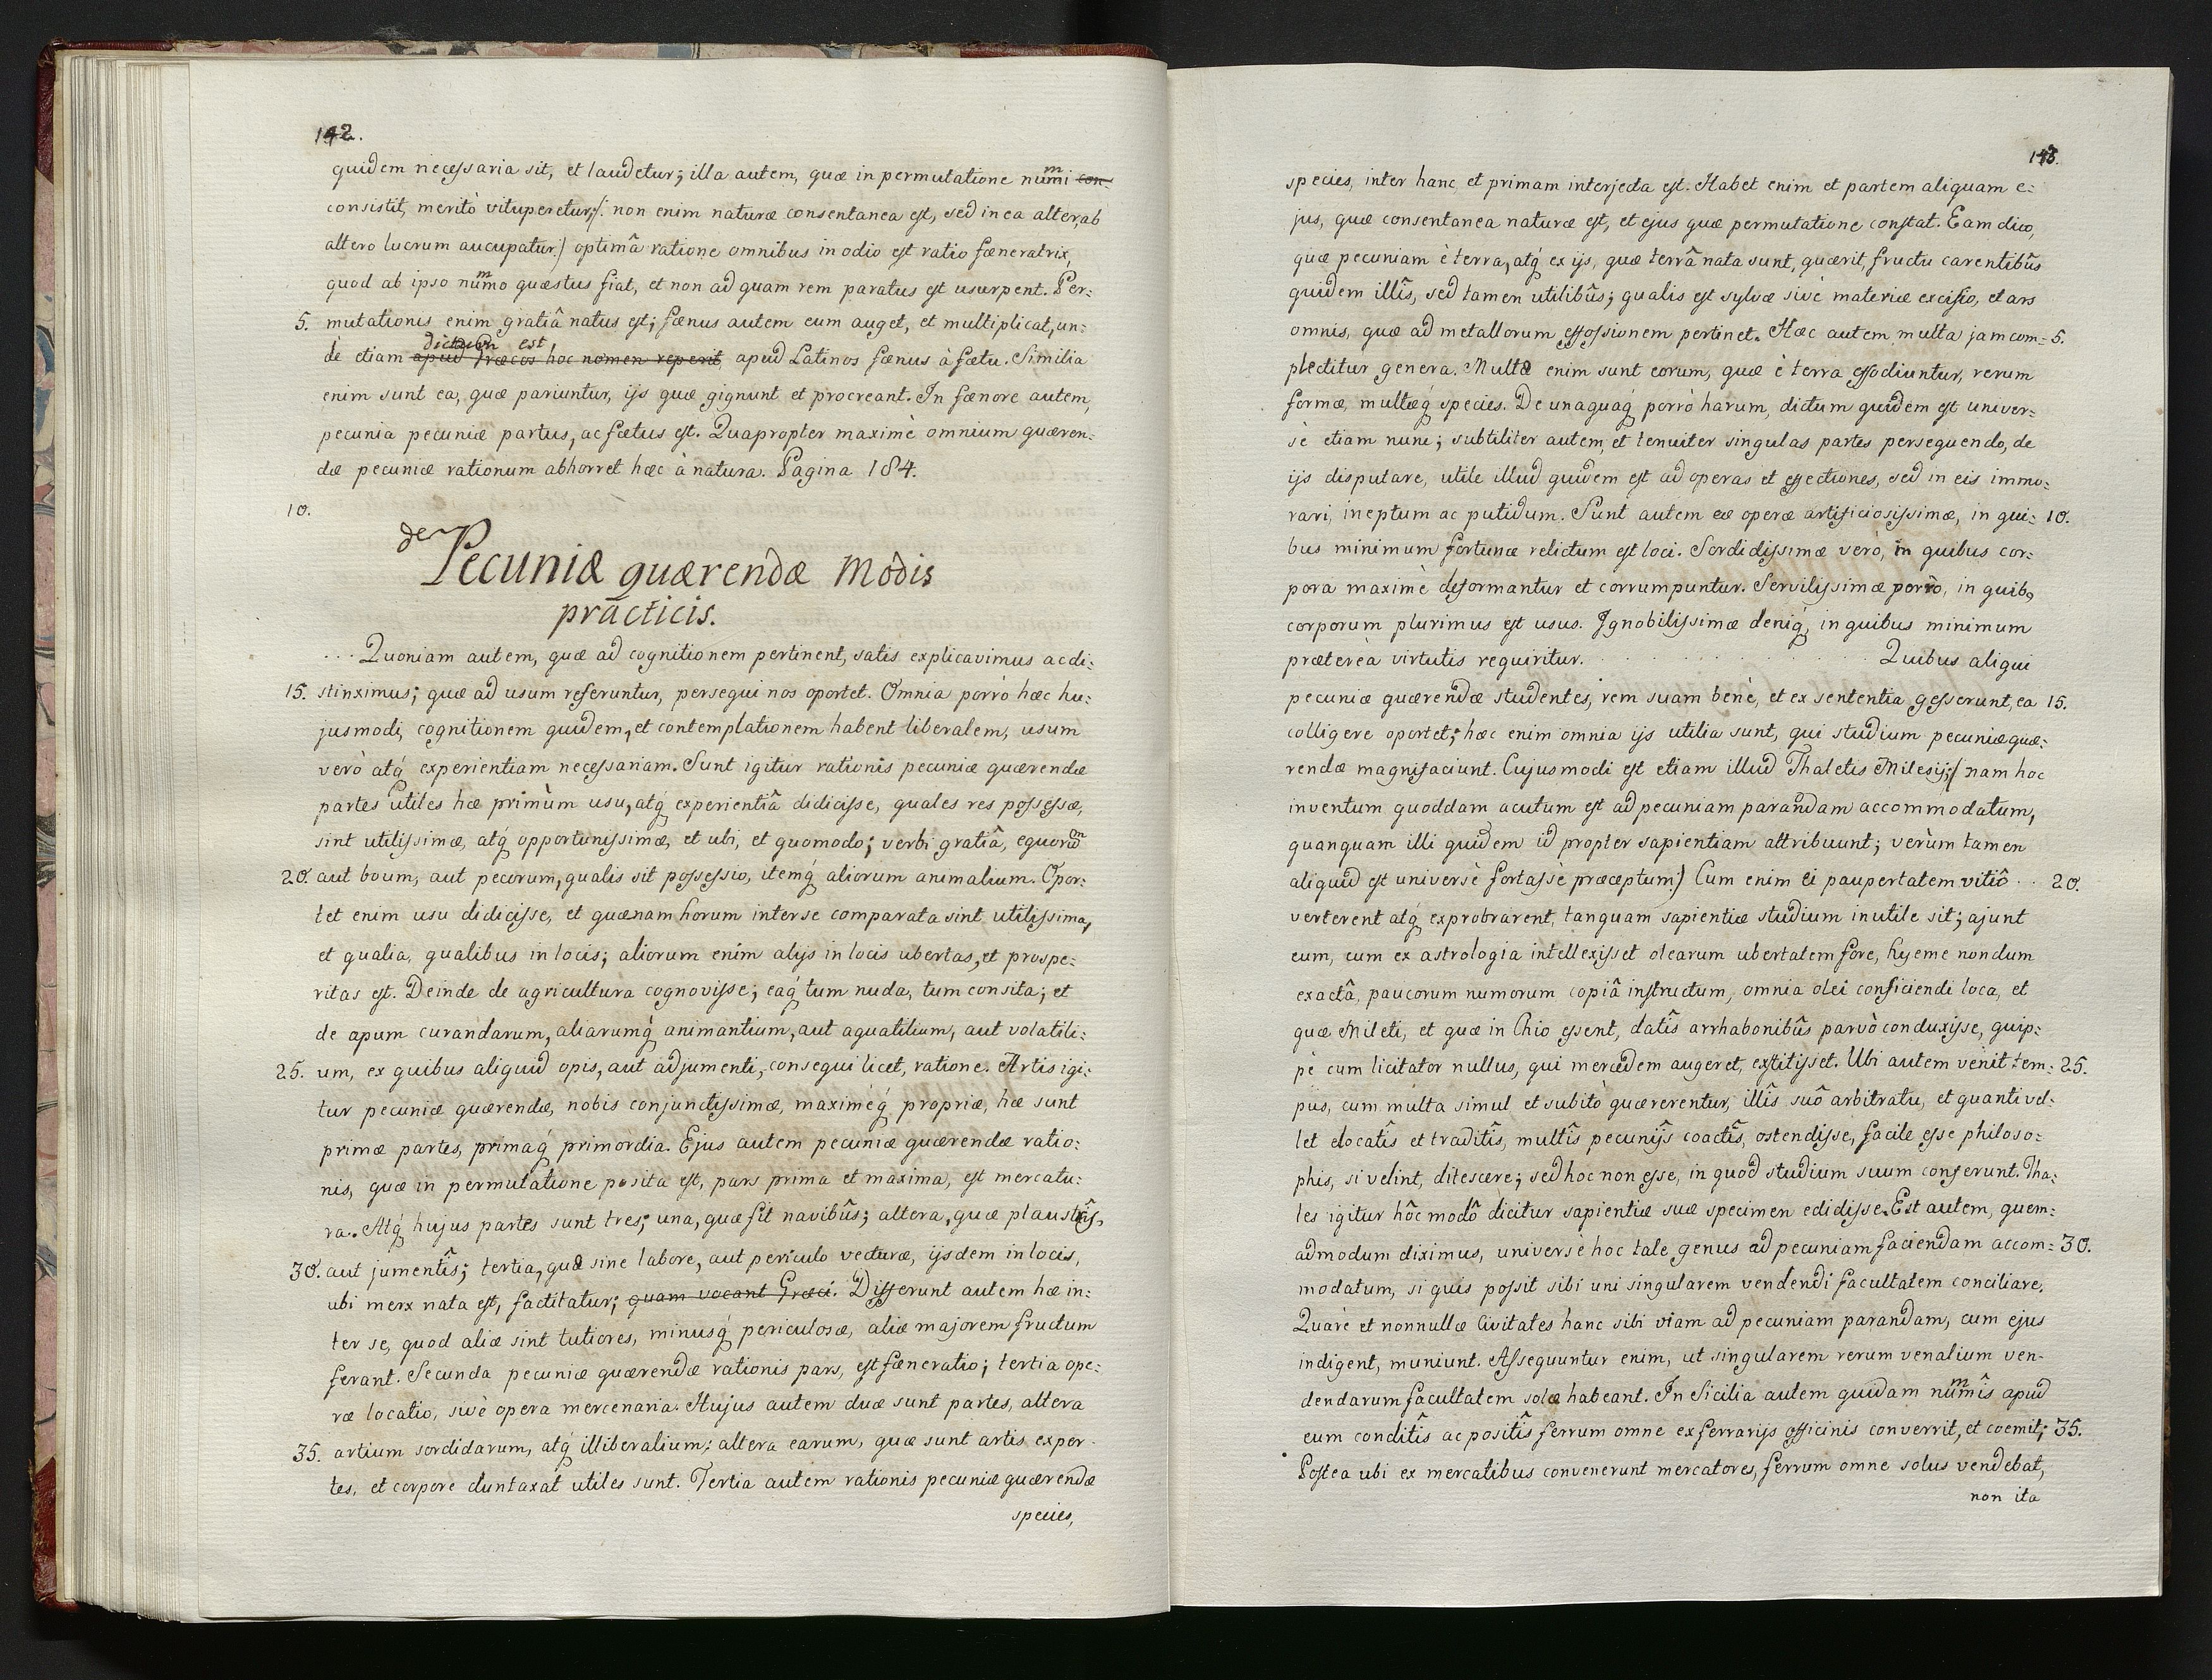 142.
quidem necessaria sit, et laudetur; illa autem, quæ in permutatione numi con-
m
consistit, meritò vituperetur;/: non enim naturæ consentanea est, sed in ea alter, ab
altero lucrum aucupatur:/ optimâ ratione omnibus in odio est ratio fæneratrix,
quod ab ipso numo quæstus fiat, et non ad quam rem paratus est usurpent. Per:
m
5. mutationis enim gratiâ natus est; fænus autem eum auget, et multiplicat, un:
dictum est
dè etiam apud Græcos hoc nomen reperit, apud Latinos fænus à fætu. Similia
enim sunt ea, quæ pariuntur, ijs quæ gignunt et procreant. In fænore autem,
pecunia pecuniæ partus, ac fœtus est. Quapropter maximè omnium quæren:
dæ pecuniæ rationum abhorret hæc à natura. Pagina 184.
10.
de Pecuniæ quærendæ Modis
practicis.
... Quoniam autem, quæ ad cognitionem pertinent, satis explicavimus ac di:
15. stinximus; quæ ad usum referuntur, persequi nos oportet. Omnia porrò hæc hu:
jusmodi, cognitionem quidem, et contemplationem habent liberalem, usum
verò atq́ experientiam necessariam. Sunt igitur rationis pecuniæ quærendæ
partes utiles hæ primùm usu, atq́ experientiâ didicisse, quales res possessæ,
sint utilissimæ, atq́ opportunissimæ, et ubi, et quomodo; verbi gratiâ, equorum
20. aut boum, aut pecorum, qualis sit possessio, itemq́ aliorum animalium. Opor:
tet enim usu didicisse, et quænam horum inter se comparata sint utilissima,
et qualia, qualibus in locis; aliorum enim alijs in locis ubertas, et prospe:
ritas est. Deinde de agricultura cognovisse; eaq́ tum nuda, tum consita; et
de apum curandarum, aliarumq́ animantium, aut aquatilium, aut volatili:
25. um, ex quibus aliquid opis, aut adjumenti, consequi licet, ratione. Artis igi:
tur pecuniæ quærendæ, nobis conjunctissimæ, maximéq́ propriæ, hæ sunt
primæ partes, primaq́ primordia. Ejus autem pecuniæ quærendæ ratio:
nis, quæ in permutatione posita est, pars prima et maxima, est mercatu:
ra. Atq́ hujus partes sunt tres; una, quæ fit navibûs; altera, quæ plaustrîs,
30. aut jumentîs; tertia, quæ sine labore, aut periculo vecturæ, ijsdem in locis,
ubi merx nata est, factitatur; quam vocant Græci. Differunt autem hæ in:
ter se, quod aliæ sint tutiores, minusq́ periculosæ, aliæ majorem fructum
ferant. Secunda pecuniæ quærendæ rationis pars, est fæneratio; tertia ope:
ræ locatio, sivè opera mercenaria. Hujus autem duæ sunt partes, altera
35. artium sordidarum, atq́ illiberalium; altera earum, quæ sunt artis exper-
tes, et corpore duntaxat utiles sunt. Tertia autem rationis pecuniæ quærendæ
species,
143.
species, inter hanc et primam interjecta est. Habet enim et partem aliquam e:
jus, quæ consentanea naturæ est, et ejus quæ permutatione constat. Eam dico,
quæ pecuniam è terra, atq́ ex ijs, quæ terrâ nata sunt, quærit, fructu carentibûs
quidem illîs, sed tamen utilibûs; qualis est sylvæ sivè materiæ excisio, et ars
omnis, quæ ad metallorum effossionem pertinet. Hæc autem multa jam com: 5.
plectitur genera. Multæ enim sunt eorum, quæ è terra effodiuntur, rerum
formæ, multæq́ species. De unaquaq́ porrò harum, dictum quidem est univer:
sè etiam nunc; subtiliter autem, et tenuiter singulas partes persequendo, de
ijs disputare, utile illud quidem est ad operas et effectiones, sed in eis immo:
rari, ineptum ac putidum. Sunt autem eæ operæ artificiosissimæ, in qui: 10.
bus minimum fortunæ relictum est loci. Sordidissimæ verò, in quibus cor:
pora maximè deformantur et corrumpuntur. Servilissimæ porrò, in quib,
corporum plurimus est usus. Ignobilissimæ deniq́, in quibus minimum
præterea virtutis requiritur. . . . . . . . Quibus aliqui
pecuniæ quærendæ studentes, rem suam benè, et ex sententia gesserunt, ea 15.
colligere oportet; hæc enim omnia ijs utilia sunt, qui studium pecuniæ quæ:
rendæ magnifaciunt. Cujusmodi est etiam illud Thaletis Milesij;/ nam hoc
inventum quoddam acutum est ad pecuniam parandam accommodatum,
quanquam illi quidem id propter sapientiam attribuunt; verùm tamen
aliquid est universè fortassè præceptum:/ Cum enim ei paupertatem vitiô . . 20.
verterent atq́ exprobrarent, tanquam sapientiæ studium inutile sit; ajunt
eum, cum ex astrologia intellexisset olearum ubertatem fore, hyeme nondum
exactâ, paucorum numorum copiâ instructum, omnia olei conficiendi loca, et
quæ Mileti, et quæ in Chio essent, datîs arrhabonibûs parvò conduxisse, quip:
pè cum licitator nullus, qui mercedem augeret, extitisset. Ubi autem venit tem: 25.
pus, cum multa simul et subitò quærerentur, illîs suô arbitratu, et quanti vel:
let elocatîs et traditîs, multîs pecunijs coactîs, ostendisse, facile esse philoso:
phis, si velint, ditescere; sed hoc non esse, in quod studium suum conferunt. Tha:
les igitur hôc modô dicitur sapientiæ suæ specimen edidisse. Est autem, quem:
admodum diximus, universè hoc tale genus ad pecuniam faciendam accom: 30.
modatum, si quis possit sibi uni singularem vendendi facultatem conciliare.
Quarè et nonnullæ Civitates hanc sibi viam ad pecuniam parandam, cum ejus
indigent, muniunt. Assequuntur enim, ut singularem rerum venalium ven-
dendarum facultatem solæ habeant. In Sicilia autem quidam numîs apud
m
eum conditîs ac positîs ferrum omne ex ferrarijs officinis converrit, et coemit; 35.
Postea ubi ex mercatibus convenerunt mercatores, ferrum omne solus vendebat,
non ita